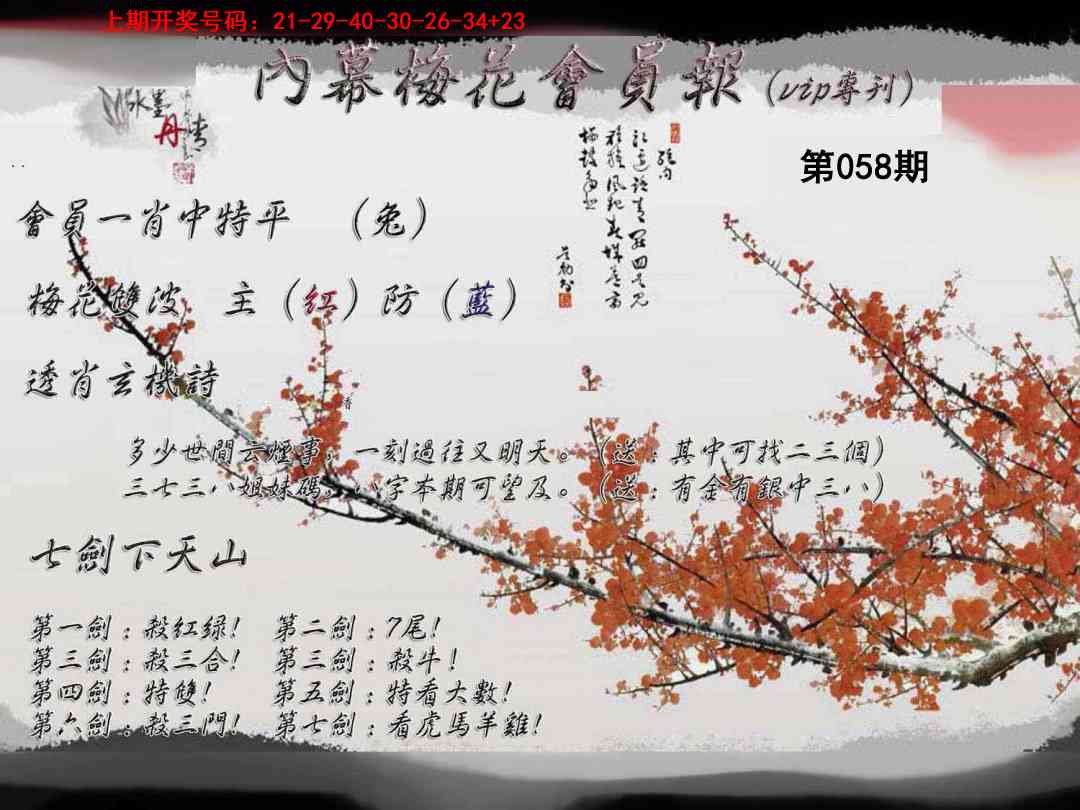 上期开奖号码：21-29-40-30-26-34+23
內幕梅花會員報（vip專刊）
水墨
丹青
第058期
會員一肖中特平 （兔）
梅花雙波 主（紅）防（藍）
透肖玄機詩
多少世間云煙事，一刻過往又明天。（送：其中可找二三個）
三七三八姐妹碼，八字本期可望及。（送：有金有銀中三八）
七劍下天山
第一劍：殺紅绿! 第二劍：7尾!
第三劍：殺三合! 第三劍：殺牛!
第四劍：特雙! 第五劍：特看大數!
第六劍：殺三門! 第七劍：看虎馬羊雞!